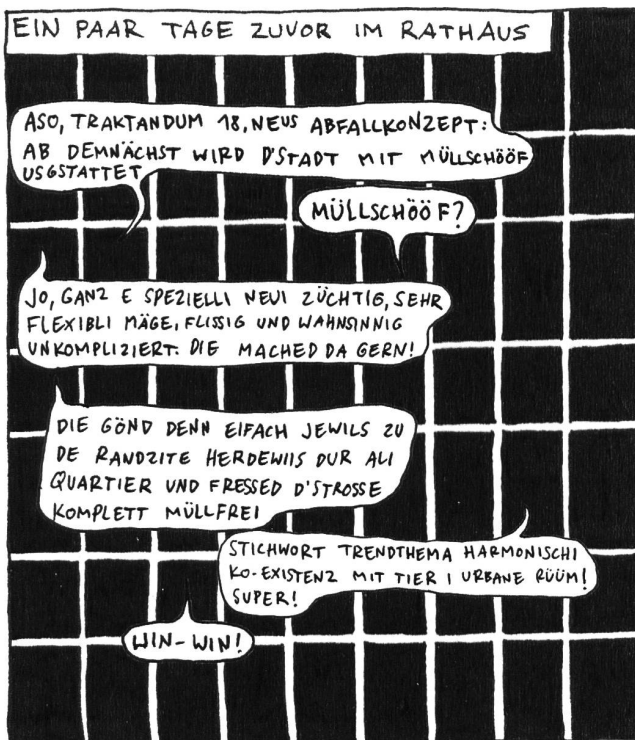 EIN PAAR TAGE ZUVOR IM RATHAUS
ASO, TRAKTANDUM 18, NEUS ABFALLKONZEPT:
AB DEMNÄCHST WIRD D'STADT MIT MÜLLSCHÖÖF
USGSTATTET
MÜLLSCHÖÖF?
JO, GANZ E SPEZIELLI NEUI ZÜCHTIG, SEHR
FLEXIBLI MÄGE, FLISSIG UND WAHNSINNIG
UNKOMPLIZIERT: DIE MACHED DA GERN!
DIE GÖND DENN EIFACH JEWILS ZU
DE RANDZITE HERDEWIIS DUR ALI
QUARTIER UND FRESSED D'STROSSE
KOMPLETT MÜLLFREI
STICHWORT TRENDTHEMA HARMONISCHI
KO-EXISTENZ MIT TIER I URBANE RÜÜM!
SUPER!
WIN-WIN!